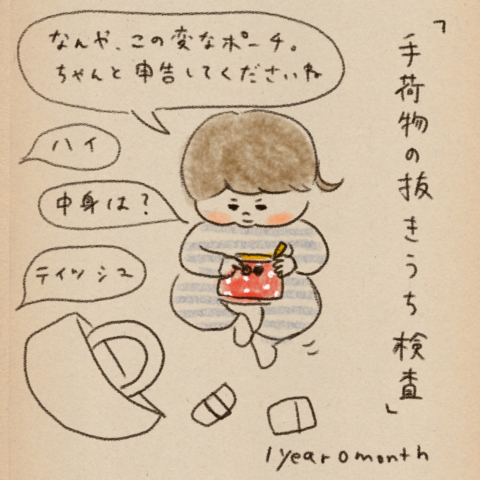 「手荷物の抜きうち検査」
なんや、この変なポーチ。
ちゃんと申告してくださいね
ハイ
中身は？
ティッシュ
1 year 0 month